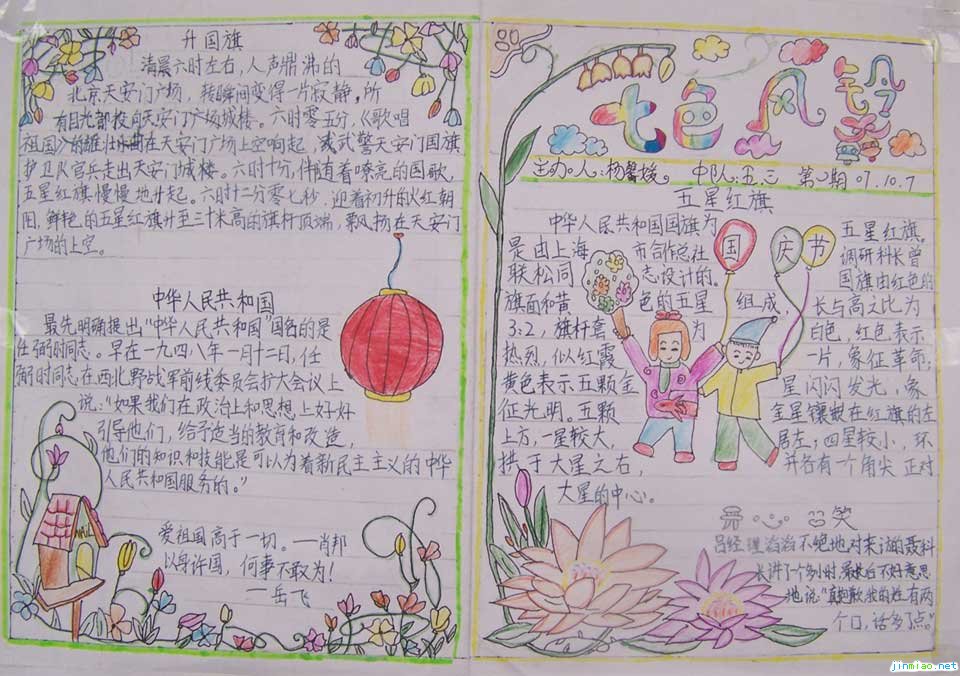 升国旗
清晨六时左右,人声鼎沸的
北京天安门广场,转瞬间变得一片寂静,所
有目光都投向天安门广场城楼。六时零五分,《歌唱
祖国》的雄壮曲在天安门广场上空响起,武警天安门国旗
护卫队官兵走出天安门城楼。六时十分,伴随着嘹亮的国歌,
五星红旗慢慢地升起。六时十二分零七秒,迎着初升的火红朝
阳,鲜艳的五星红旗升至三十米高的旗杆顶端,飘扬在天安门
广场的上空。
中华人民共和国
最先明确提出“中华人民共和国”国名的是
任弼时同志。早在一九四八年一月十二日,任
弼时同志在西北野战军前线委员会扩大会议上
说:“如果我们在政治上和思想上好好
引导他们,给予适当的教育和改造,
他们的知识和技能是可以为着新民主主义的中华
人民共和国服务的。”
爱祖国高于一切。—肖邦
以身许国,何事不敢为!
—岳飞
七色风铃
主办人:杨馨媛 中队:五.三 第2期 07.10.7
五星红旗
国庆节
中华人民共和国国旗为 五星红旗,
是由上海 市合作总社 调研科长曾
联松同 志设计的。 国旗由红色的
旗面和黄 色的五星 组成, 长与高之比为
3:2,旗杆套 为 白色,红色表示
热烈,似红霞 一片,象征革命;
黄色表示五颗金 星闪闪发光,象
征光明。五颗 金星镶嵌在红旗的左
上方,一星较大, 居左;四星较小,环
拱于大星之右, 并各有一个角尖 正对
大星的中心。
笑
吕经理滔滔不绝地对来访的聂科
长讲了个多小时,最后不好意思
地说:“真抱歉,我的姓有两
个口,话多了点。”
jinmiao.net